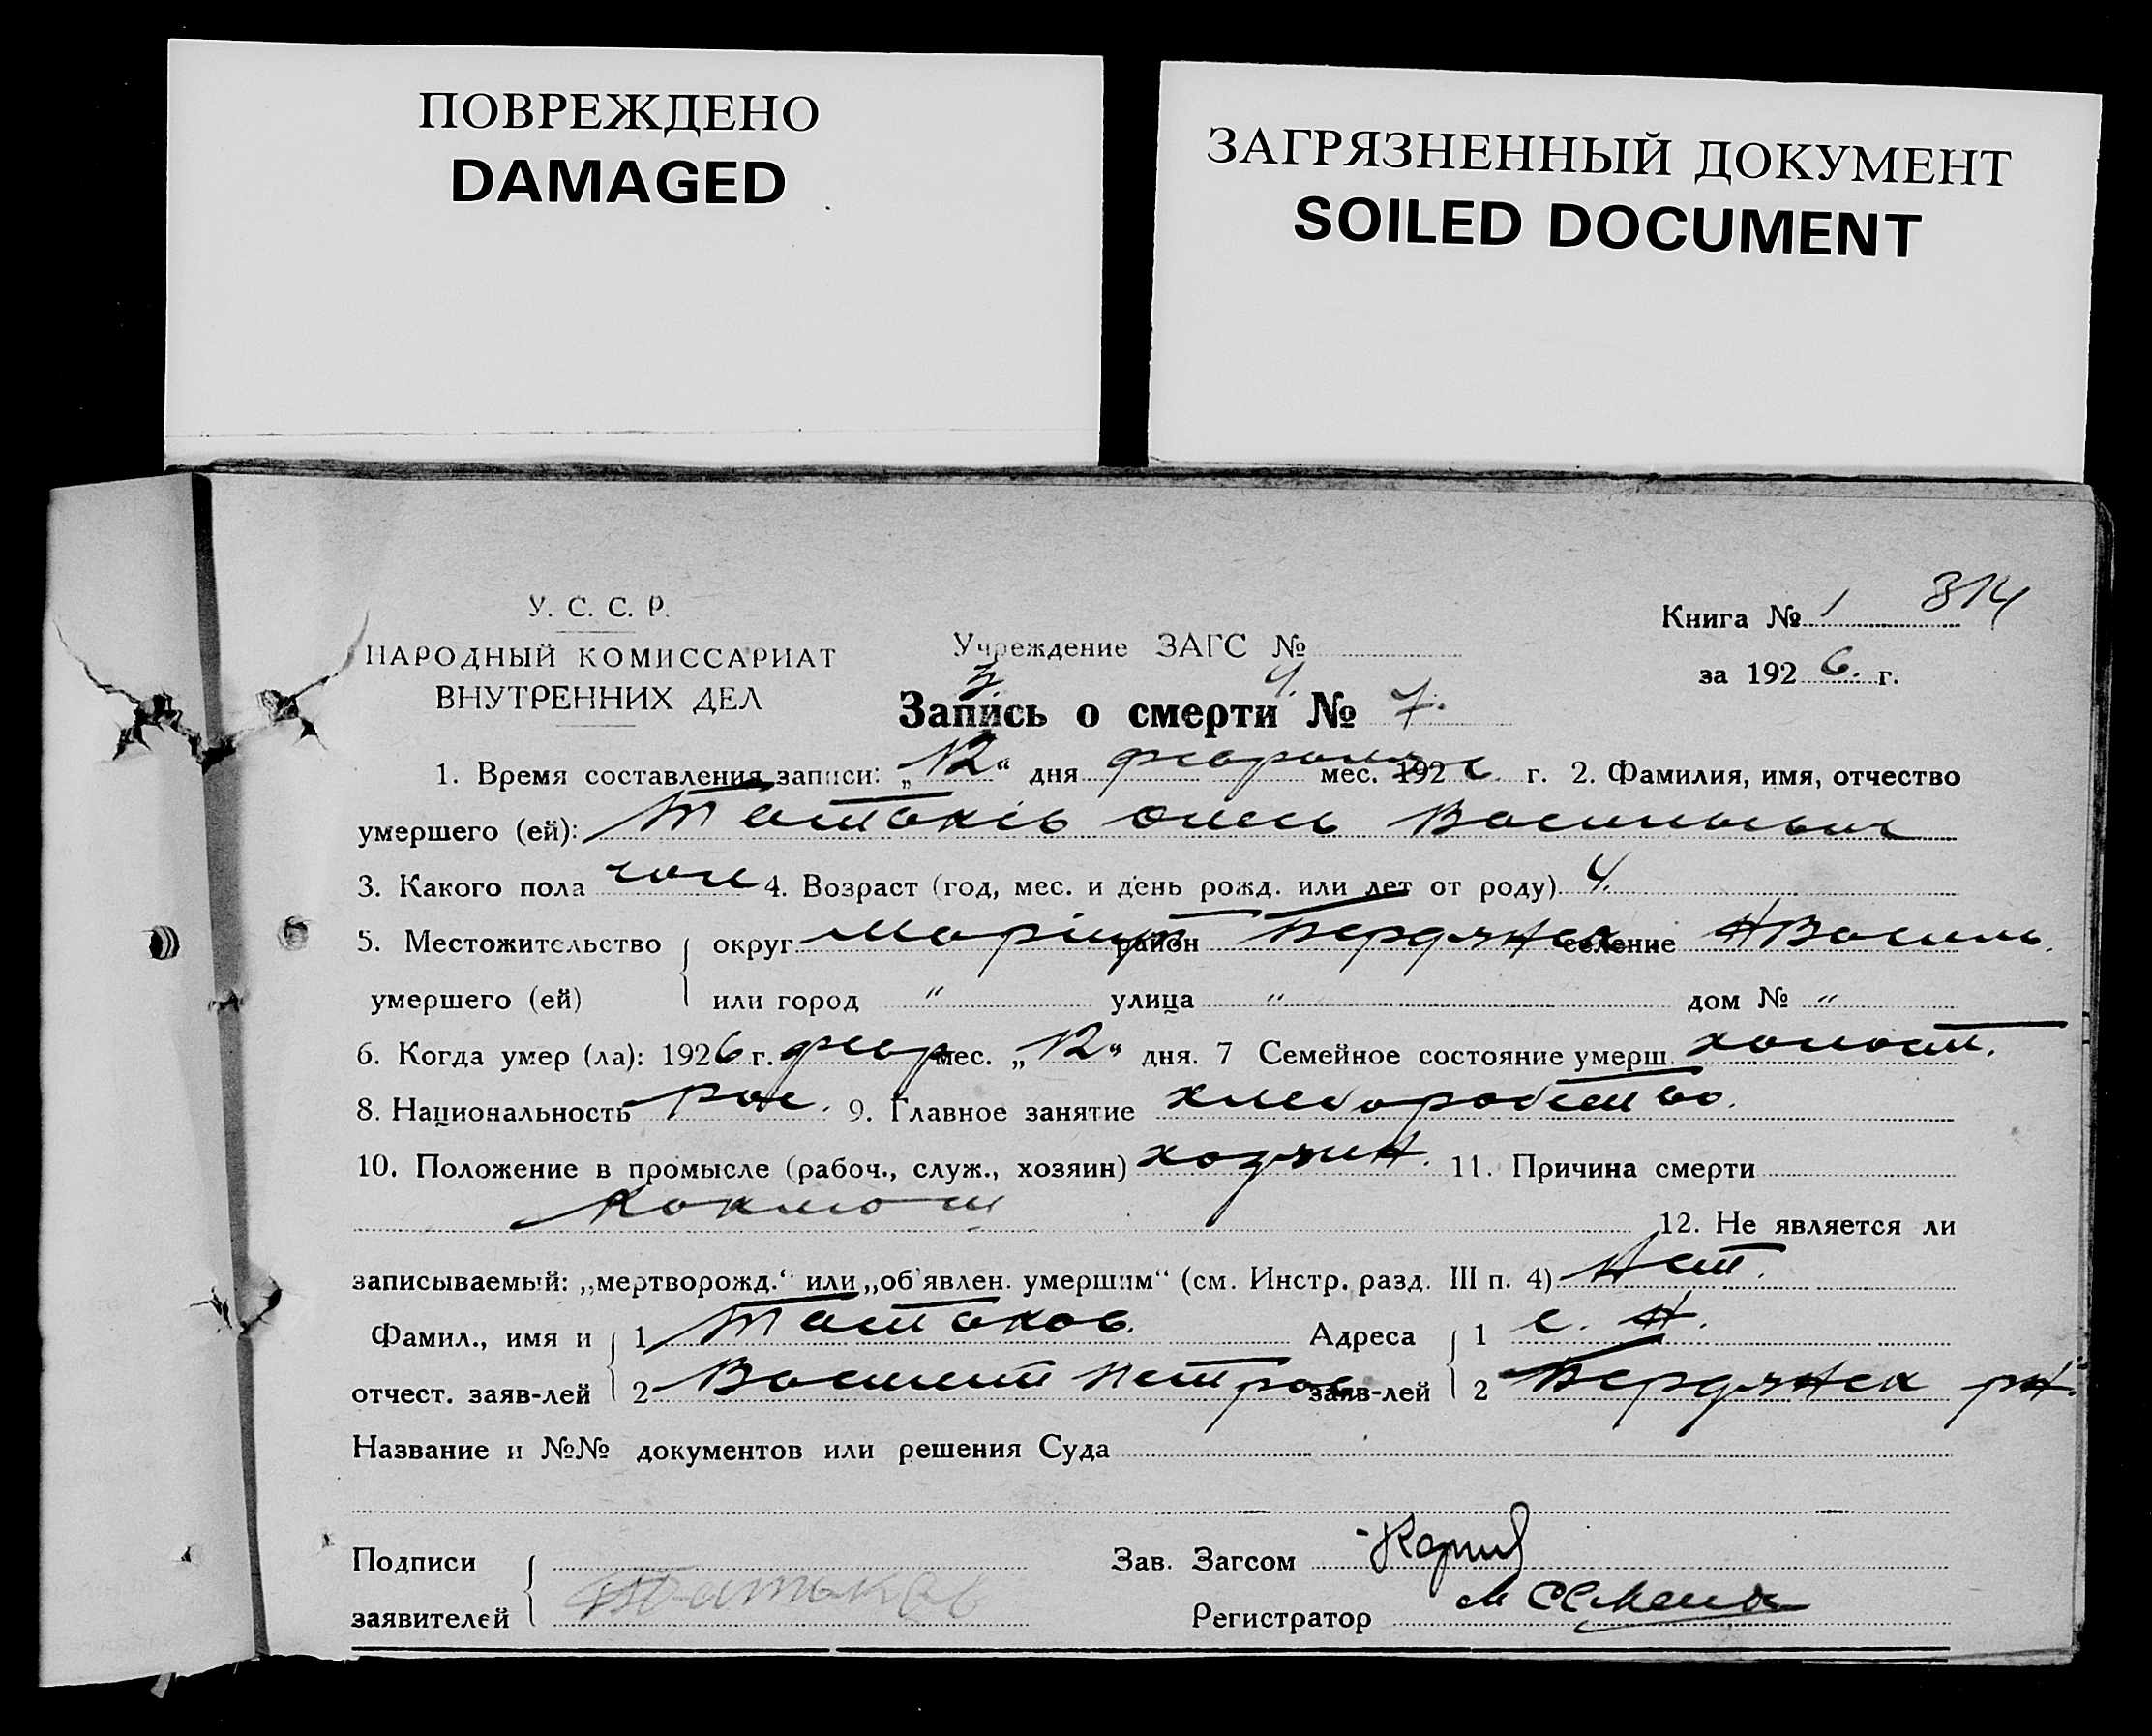 ПОВРЕЖДЕНО
DAMAGED
ЗАГРЯЗНЕННЫЙ ДОКУМЕНТ
SOILED DOCUMENT
У. С. С. Р.
НАРОДНЫЙ КОМИССАРИАТ
ВНУТРЕННИХ ДЕЛ
Учреждение ЗАГС №
Книга № 1 314
за 1926 г.
3. 4.
Запись о смерти № 7.
1. Время составления записи: „12“ дня февраля мес. 1926 г. 2. Фамилия, имя, отчество
умершего (ей): Татаків Васильевич
3. Какого пола 4. Возраст (год, мес. и день рожд. или лет от роду) 4.
5. Местожительство округ Маріуп район Бердянск селение НВасиль.
умершего (ей) или город " улица " дом № "
6. Когда умер (ла): 1926 г. февр мес. „12“ дня. 7 Семейное состояние умерш. холост.
8. Национальность рос. 9. Главное занятие хлеборобство.
10. Положение в промысле (рабоч., служ., хозяин) хозяин. 11. Причина смерти
Коклюш 12. Не является ли
записываемый: „мертворожд.“ или „об'явлен. умершим“ (см. Инстр. разд. III п. 4) Нет.
Фамил., имя и 1 Татаков. Адреса 1 с. Н.
отчест. заяв-лей 2 Василий Петров заяв-лей 2 Бердянск рн.
Название и №№ документов или решения Суда
Подписи Зав. Загсом
заявителей Татаков Регистратор